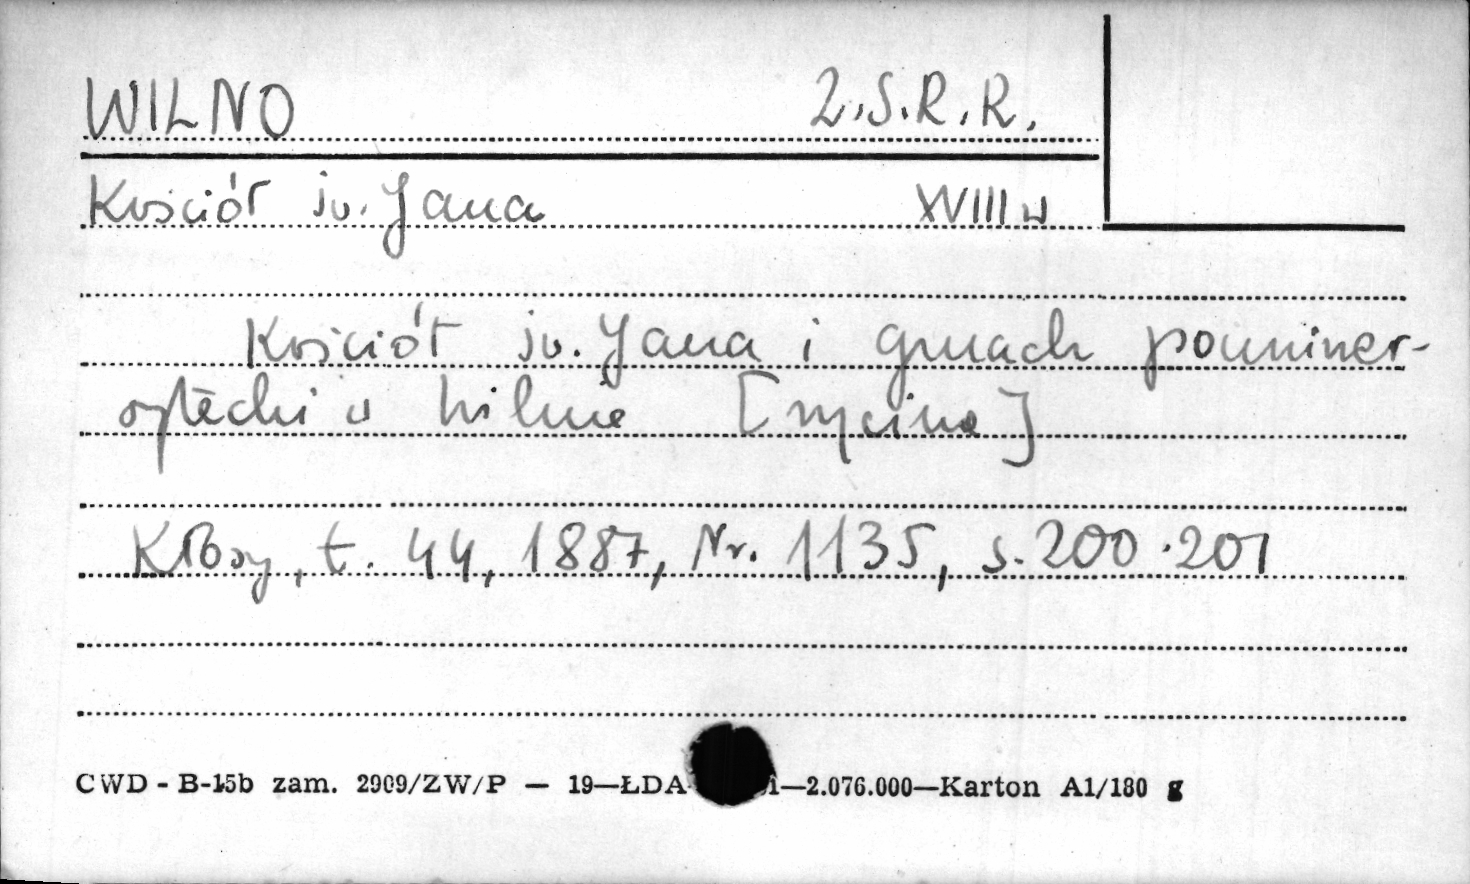 WILNO Z.S.R.R.
Kościół św. Jana XVIII w
Kościół św. Jana i gmach pouniwer-
sytecki w Wilnie [rycina]
Kłosy, t. 44, 1887, Nr. 1135, s. 200-201
CWD - B-15b zam. 2909/ZW/P — 19—ŁDA i—2.076.000—Karton A1/180 g